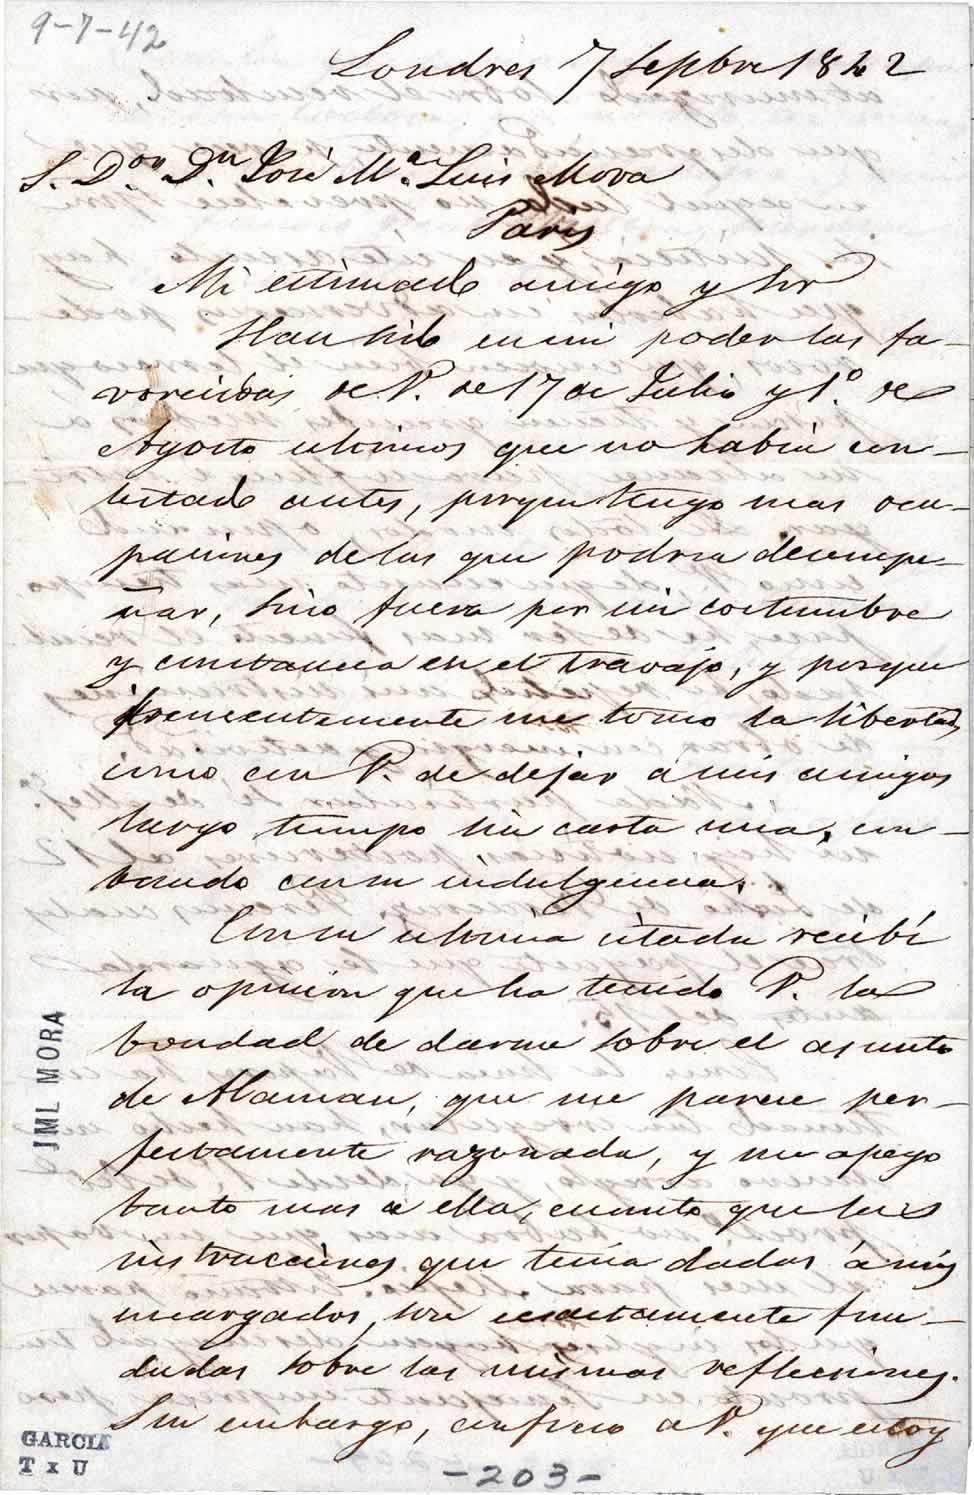 9-7-42
Londres 7 Sepbre 1842
S. Don Dn. José Ma. Luis Mora
Paris
Mi estimado amigo y Sor
Han sido en mi poder las fa-
vorecidas de V. de 17 de Julio y 1º. de
Agosto ultimos que no habia con-
testado antes, porque tengo mas ocu-
paciones de las que podria desempe-
ñar, sino fuera por mi costumbre
y constancia en el travajo, y porque
frecuentemente me tomo la libertad
como con V. de dejar á mis amigos
largo tiempo sin carta mia, con-
tando con su indulgencia.
Con su ultima citada recibí
la opinion que ha tenido V. la
bondad de darme sobre el asunto
de Alaman, que me parece per-
fectamente razonada, y me apego
tanto mas á ella, cuanto que las
instrucciones que tenia dadas á mis
encargados, son exactamente fun-
dadas sobre las mismas reflecciones.
Sin embargo, confieso a V. que estoy
JML MORA
GARCIA
T x U
-203-